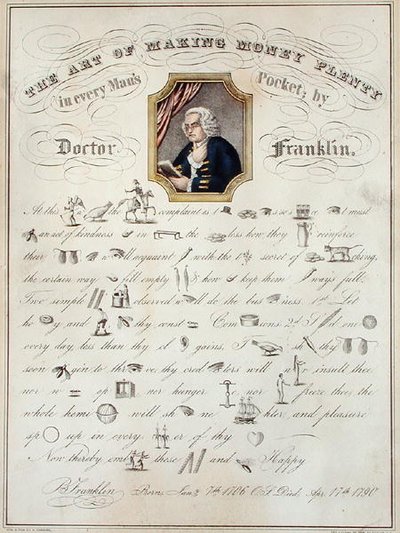 THE ART OF MAKING MONEY PLENTY
in every Man's Pocket; by
Doctor Franklin.
At this the complaint is t s is e t must
an act of kindness in the less how they reinforce
their w ll acquaint with the secret of ching,
the certain way fill empty & how keep them ways full.
Two simple observed w ll do the bus ness. 1st Let
ho y and thy const Com ons 2d S d one
every day less than thy gains, I sh thy
soon gin to thrive thy cred tors will insult thee
nor w op nor hunger nor freeze thee the
whole hemi will sh ne hter and pleasure
sp up in every er of thy
Now thereby emb these and Happy
B. Franklin Born Jany 7th 1706 O.S. Died Apr. 17th 1790